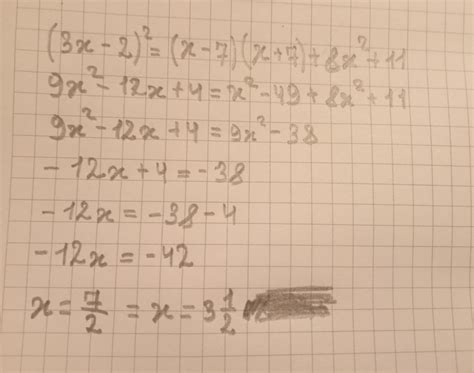 (3x-2)² = (x-7)(x+7)+8x²+11
9x²-12x+4 = x²-49+8x²+11
9x²-12x+4 = 9x²-38
-12x+4 = -38
-12x = -38-4
-12x = -42
x = 7/2 = x = 3 1/2